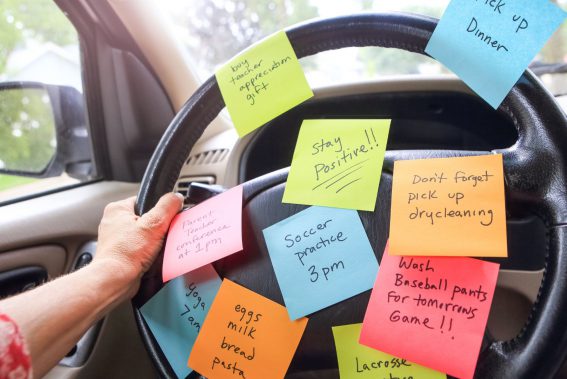 Pick up
Dinner
buy
teacher
appreciation
gift
Stay
Positive!!
Don't forget
pick up
drycleaning
Parent
Teacher
conference
at 1pm
Soccer
practice
3pm
Wash
Baseball pants
for tomorrows
Game!!
Yoga
7am
eggs
milk
bread
pasta
Lacrosse